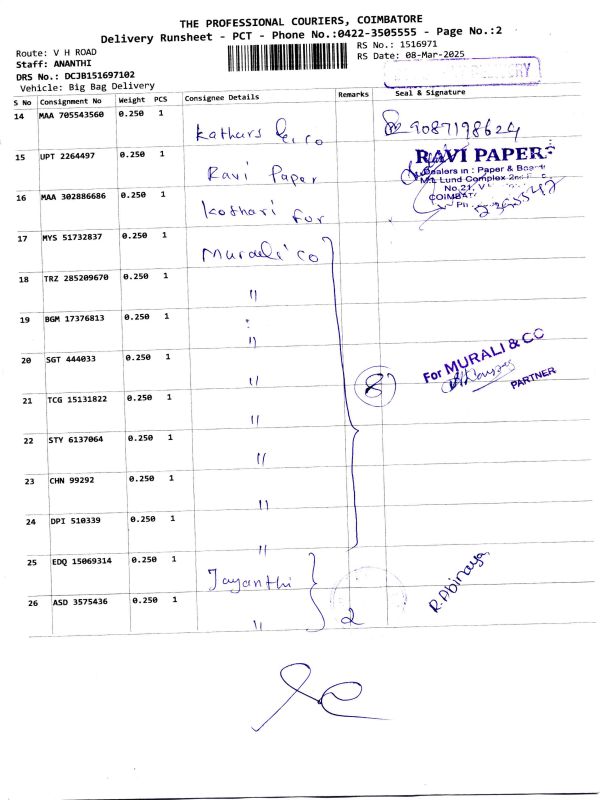 THE PROFESSIONAL COURIERS, COIMBATORE
Delivery Runsheet - PCT - Phone No.:0422-3505555 - Page No.:2
Route: V H ROAD
RS No.: 1516971
Staff: ANANTHI
RS Date: 08-Mar-2025
DRS No.: DCJB151697102
Vehicle: Big Bag Delivery
S No Consignment No Weight PCS Consignee Details Remarks Seal & Signature
14 MAA 705543560 0.250 1 9087198624
15 UPT 2264497 0.250 1 Ravi Paper
RAVI PAPERS
Dealers in : Paper &
M.L Lund Complex
No.21,
16 MAA 302886686 0.250 1 Kothari
17 MYS 51732837 0.250 1 Murali co
18 TRZ 285209670 0.250 1 "
19 BGM 17376813 0.250 1 "
20 SGT 444033 0.250 1 "
8
For MURALI & CO
PARTNER
21 TCG 15131822 0.250 1 "
22 STY 6137064 0.250 1 "
23 CHN 99292 0.250 1 "
24 DPI 510339 0.250 1 "
25 EDQ 15069314 0.250 1 Jayanthi
R. Abinaya
26 ASD 3575436 0.250 1 " 2